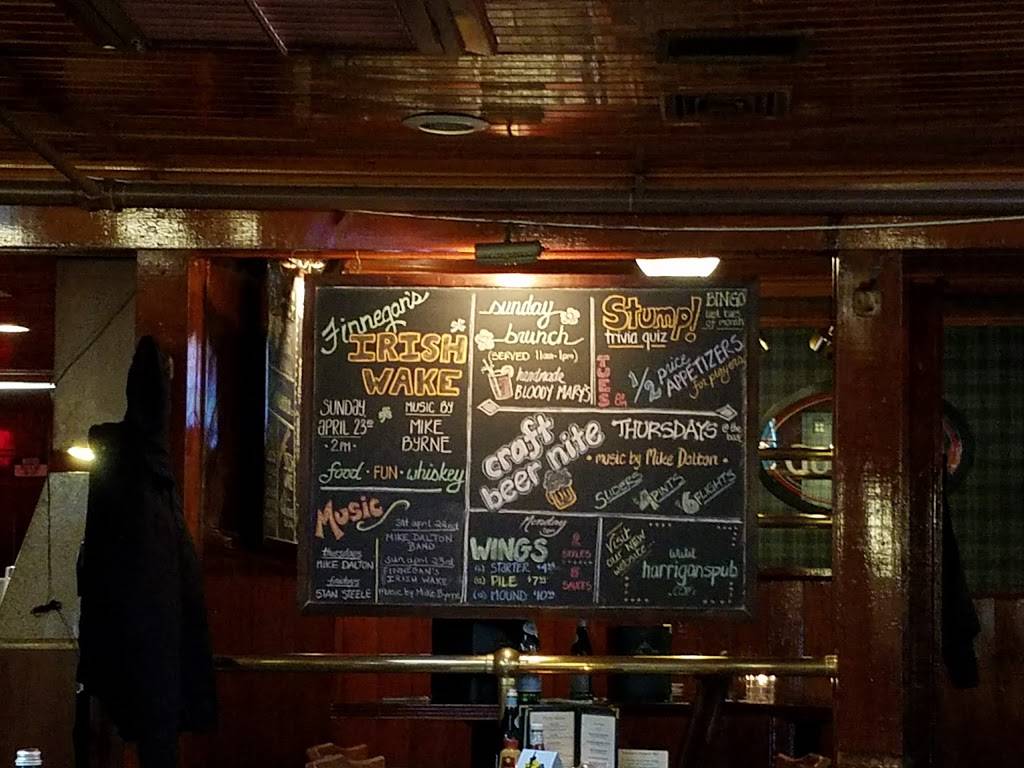 Finnegan's
IRISH
WAKE
SUNDAY
APRIL 23rd
· 2pm ·
MUSIC BY
MIKE
BYRNE
food · FUN · whiskey
sunday
brunch
(SERVED 11am-1pm)
handmade
BLOODY MARY'S
Stump!
trivia quiz
BINGO
last tues
of month
TUES
1/2 price
APPETIZERS
for players
craft
beer nite
THURSDAYS @ the bar
· music by Mike Dalton ·
SLIDERS
4 PINTS
6 FLIGHTS
Music
thursdays
MIKE DALTON
fridays
STAN STEELE
sat april 22nd
MIKE DALTON
BAND
sun april 23rd
FINNEGAN'S
IRISH WAKE
music by Mike Byrne
Monday
WINGS
STARTER
PILE
MOUND
8
SAUCES
Visit
our NEW
website
harriganspub
.com